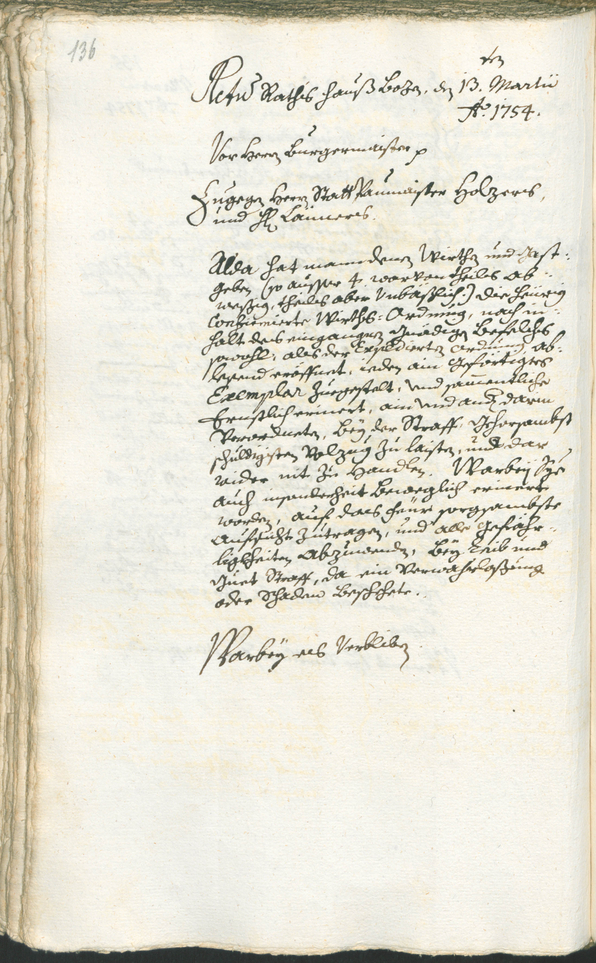 136
Actu Rathshauß Bozen, den 13. ten Martii
Ao. 1754.
Vor Herrn Burgermaister p
Zugegen Herrn Statt Paumaister Holzers,
und H: Laimers.
Alda hat man denen Wirthen und Gast:
geben (so ausser 4, war von theils ab:
wesig, theils aber Unbäßlich:) die heürig
Confirmierte Wirths: Ordnung, nach in:
halt des eingangnen Gnädigen Befelchs
sowohl, alß der Expedierten Ordnung, ab:
lesend eröffnet, ieden ain gefertigtes
Exemplar zuegestelt, und sament liche
Ernstlich erinert, ain und andren darin
Verordneten, bey der Straff, Gehorsambst
schuldigisten Volzug zu laisten, und dar
wider nit zu handlen. Warbey Sye
auch insonderheit beweglich erinert
worden, auf das feür sorgsambste
aufsicht zutragen, und alle gefähr:
ligkheiten abzuwenden, bey Leib und
Guet Straff, da ein Verwahrlosung
oder Schaden beschehete.
Warbey es Verbliben